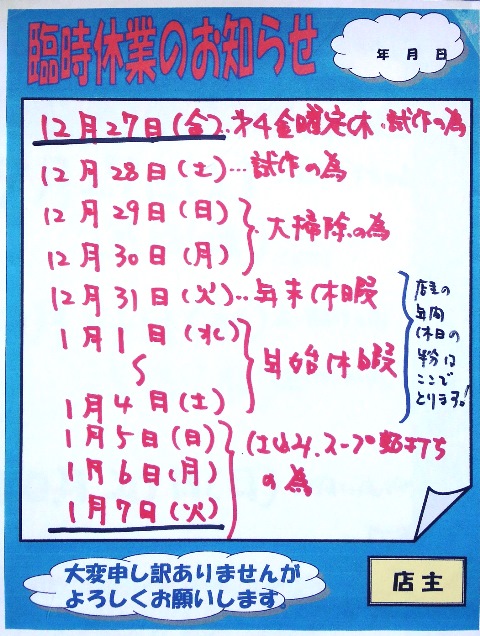 臨時休業のお知らせ
年 月 日
12月27日(金)‥第4金曜定休・試作の為
12月28日(土)…試作の為
12月29日(日)
12月30日(月)
大掃除の為
12月31日(火)‥年末休暇
1月1日(水)
〜
1月4日(土)
年始休暇
店主の
年間
休日の
半分は
ここで
とります!
1月5日(日)
1月6日(月)
1月7日(火)
仕込み、スープ 打ち
の為
大変申し訳ありませんが
よろしくお願いします。
店主